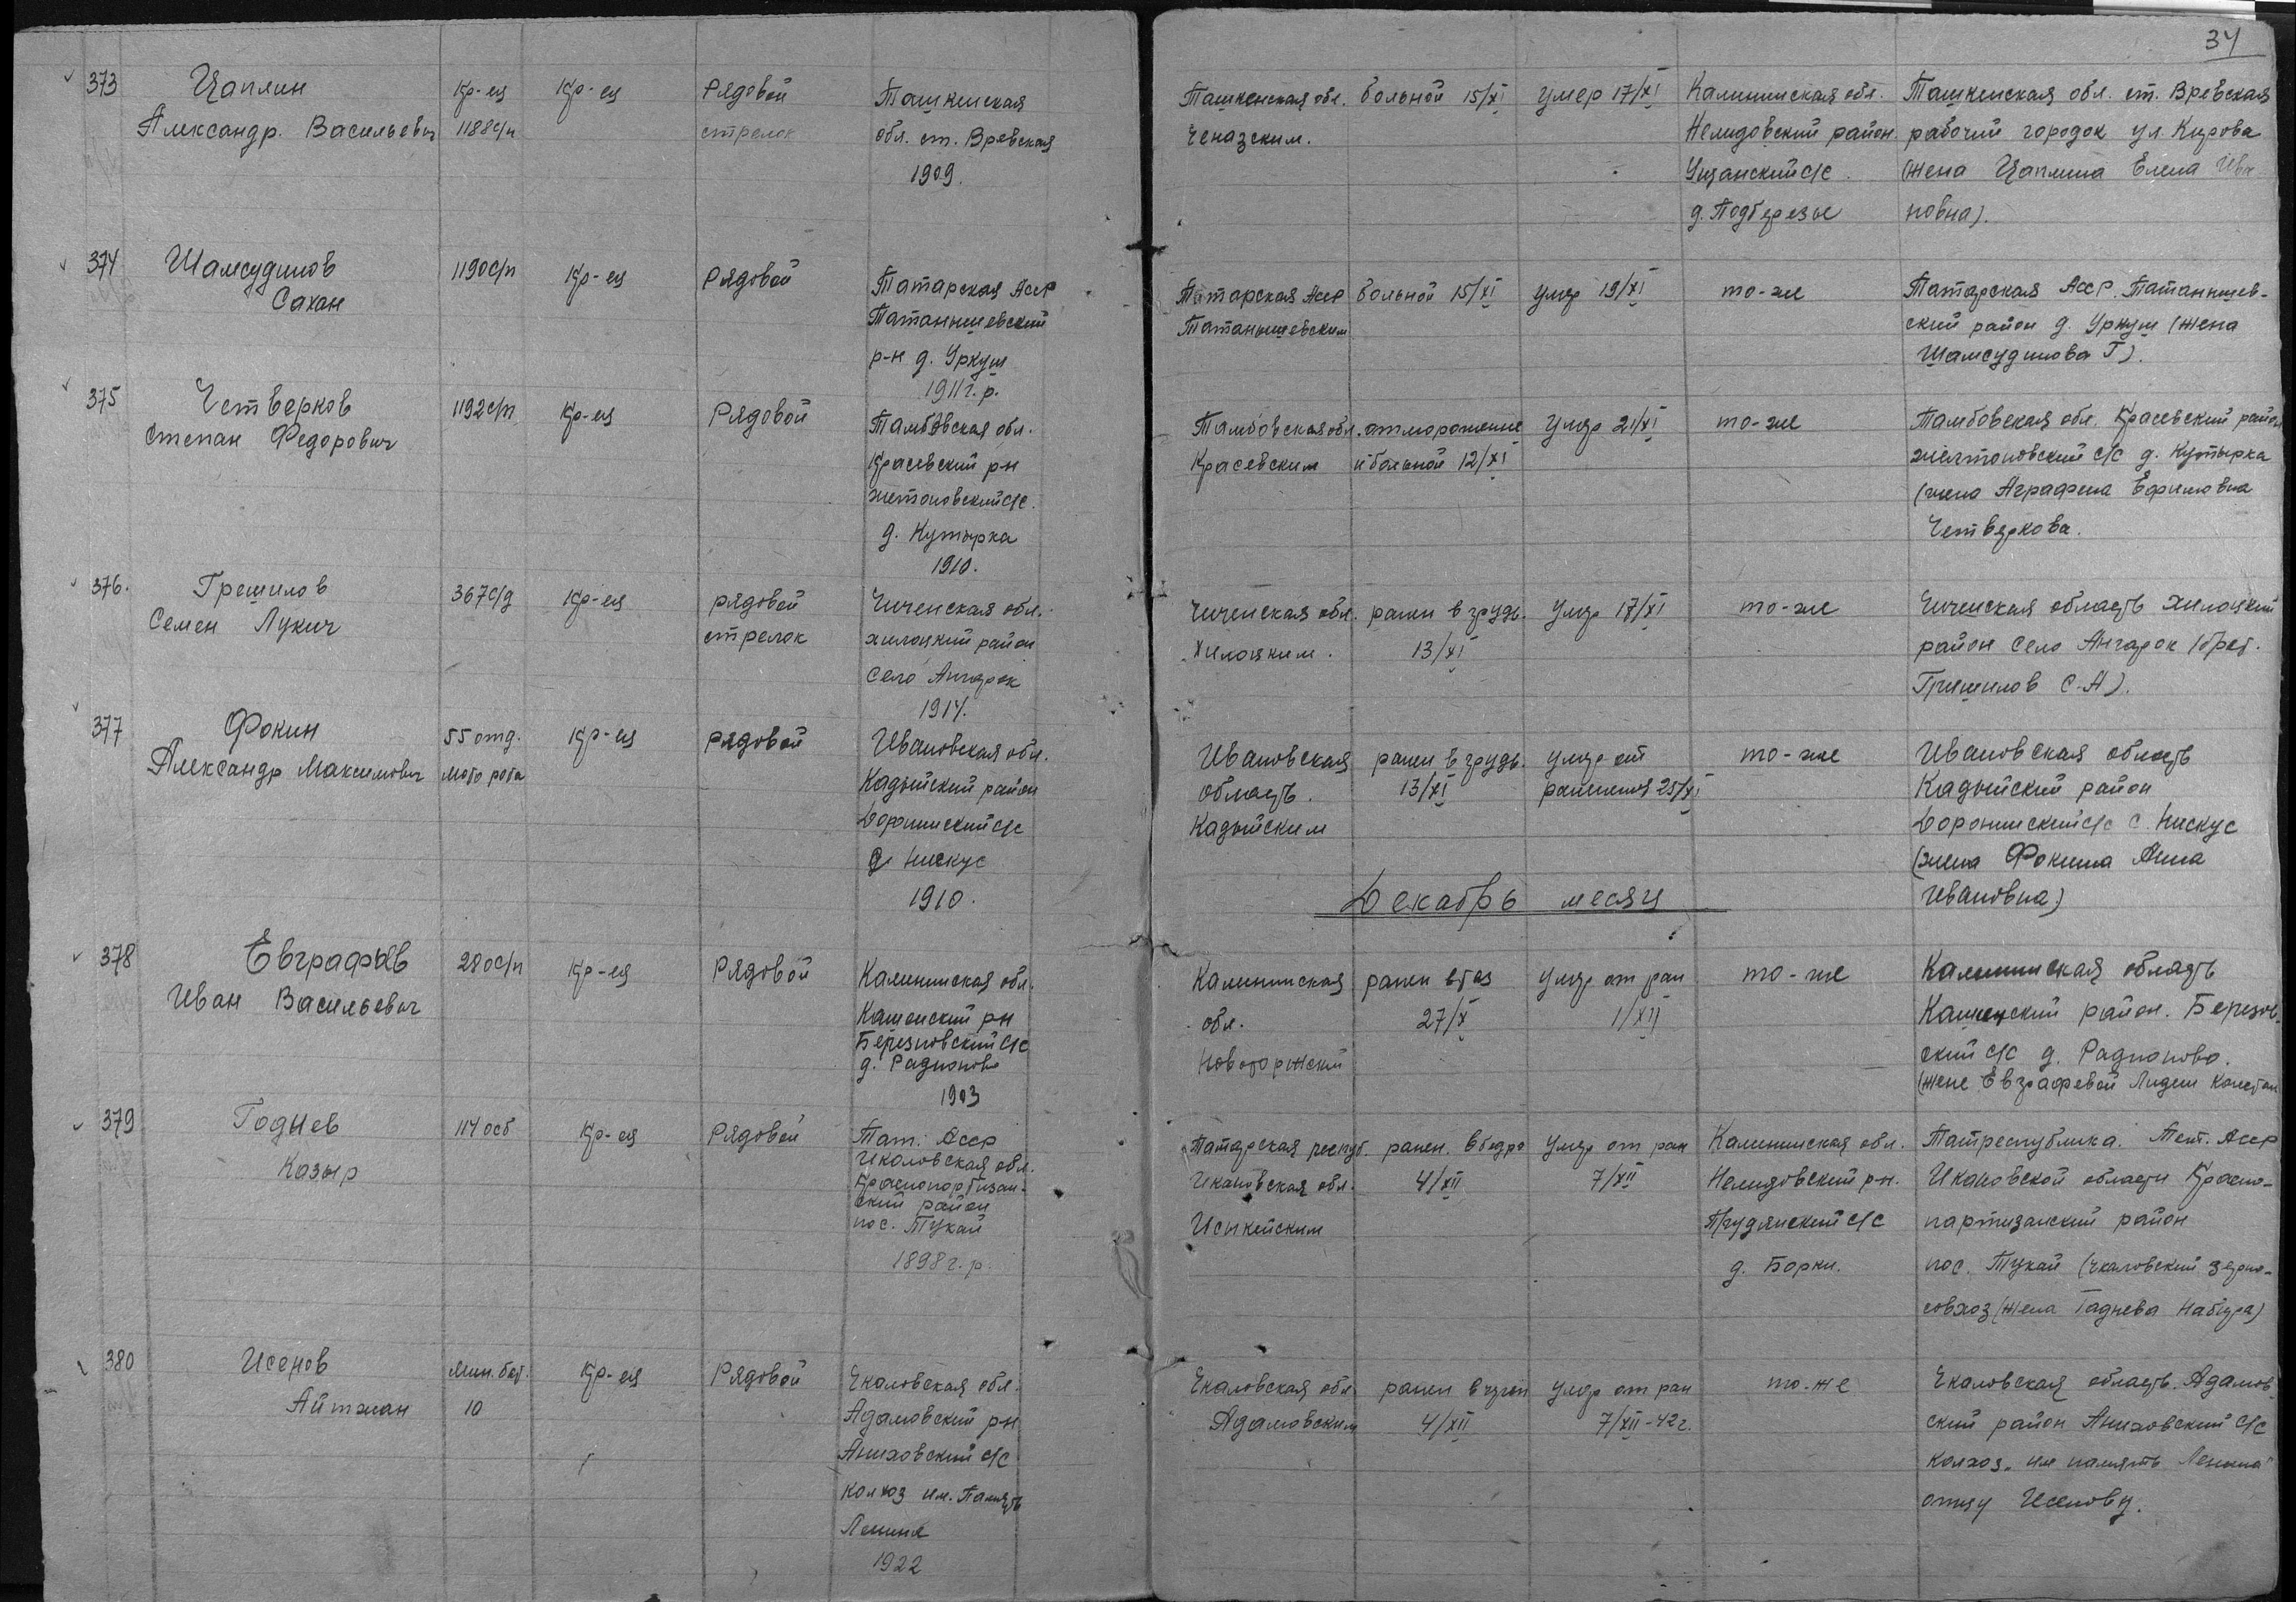 34
373 Цаплин кр-ец кр-ец Рядовой Ташкенская Ташкенская обл. больной 15/XI умер 17/XI Калининская обл. Ташкенская обл. ст. Вревская
Александр Васильевич 1188с/п стрелок обл. ст. Вревская Ченазским. Нелидовский район. рабочий городок ул. Кирова
1909. с/с (жена Цаплина Елена Ива
д. Подберезье новна).
374 Шамсудинов 1190с/п кр-ец Рядовой Татарская Асср Татарская Асср больной 15/XI умер 19/XI то-же Татарская Асср. Татанышев-
Сахан Татанышевский Татанышевским ский район д. Уркуш (жена
р-н д. Уркуш Шамсудинова Г).
1911г.р.
375 Четверков 1192с/п кр-ец Рядовой Тамбовская обл. Тамбовская обл. отморожение умер 21/XI то-же Тамбовская обл. Красевский район
Степан Федорович Красевский рн Красевским и больной 12/XI с/с д. Кутырка
с/с. (жена Аграфена Ефимовна
д. Кутырка Четверкова.
1910.
376. Грешилов 367с/д кр-ец рядовой Чиченская обл. Чиченская обл. ранен в грудь. умер 17/XI то-же Чиченская область хилоцкий
Семен Лукич стрелок хилоцкий район Хилоцким. 13/XI район село Ангарок (брат.
село Ангарок Грешилов С.А).
1914.
377 Фокин 55 отд. кр-ец рядовой Ивановская обл. Ивановская ранен в грудь. умер от то-же Ивановская область
Александр Максимович мото рота Кадыйский район область. 13/XI ранения 25/XI Кадыйский район
Доронинский с/с Кадыйским Доронинский с/с с. Нискус
д Нискус (жена Фокина Анна
1910. Ивановна)
Декабрь месяц
378 Евграфов 280с/п кр-ец Рядовой Калининская обл. Калининская ранен в таз умер от ран то-же Калининская область
Иван Васильевич Кашенский рн обл. 27/X 1/XII Кашенский район. Березов-
Березновский с/с Новоторжский ский с/с д. Радионово.
д. Радионово (жене Евграфевой Лидии
1903
379 Годнев 114 осб кр-ец Рядовой Тат. Асср Татарская респуб. ранен. в бедро умер от ран Калининская обл. Татреспублика. Асср
Казыр Чкаловская обл. Чкаловская обл. 4/XII 7/XII Нелидовский рн. Чкаловской области Красно-
Краснопартизан- с/с партизанский район
ский район д. Борки. пос. Тукай (чкаловский зерно-
пос. Тукай совхоз (жена Гаднева
1898г.р.
380 Исенов Мин. бат. кр-ец Рядовой Чкаловская обл. Чкаловская обл ранен умер от ран то-же Чкаловская область. Адамов-
Айтжан 10 Адамовский рн Адамовским 4/XII 7/XII-42г. ский район Аниховский с/с
Аниховский с/с колхоз. им память Ленина"
колхоз им. Память отцу Исенову.
Ленина
1922